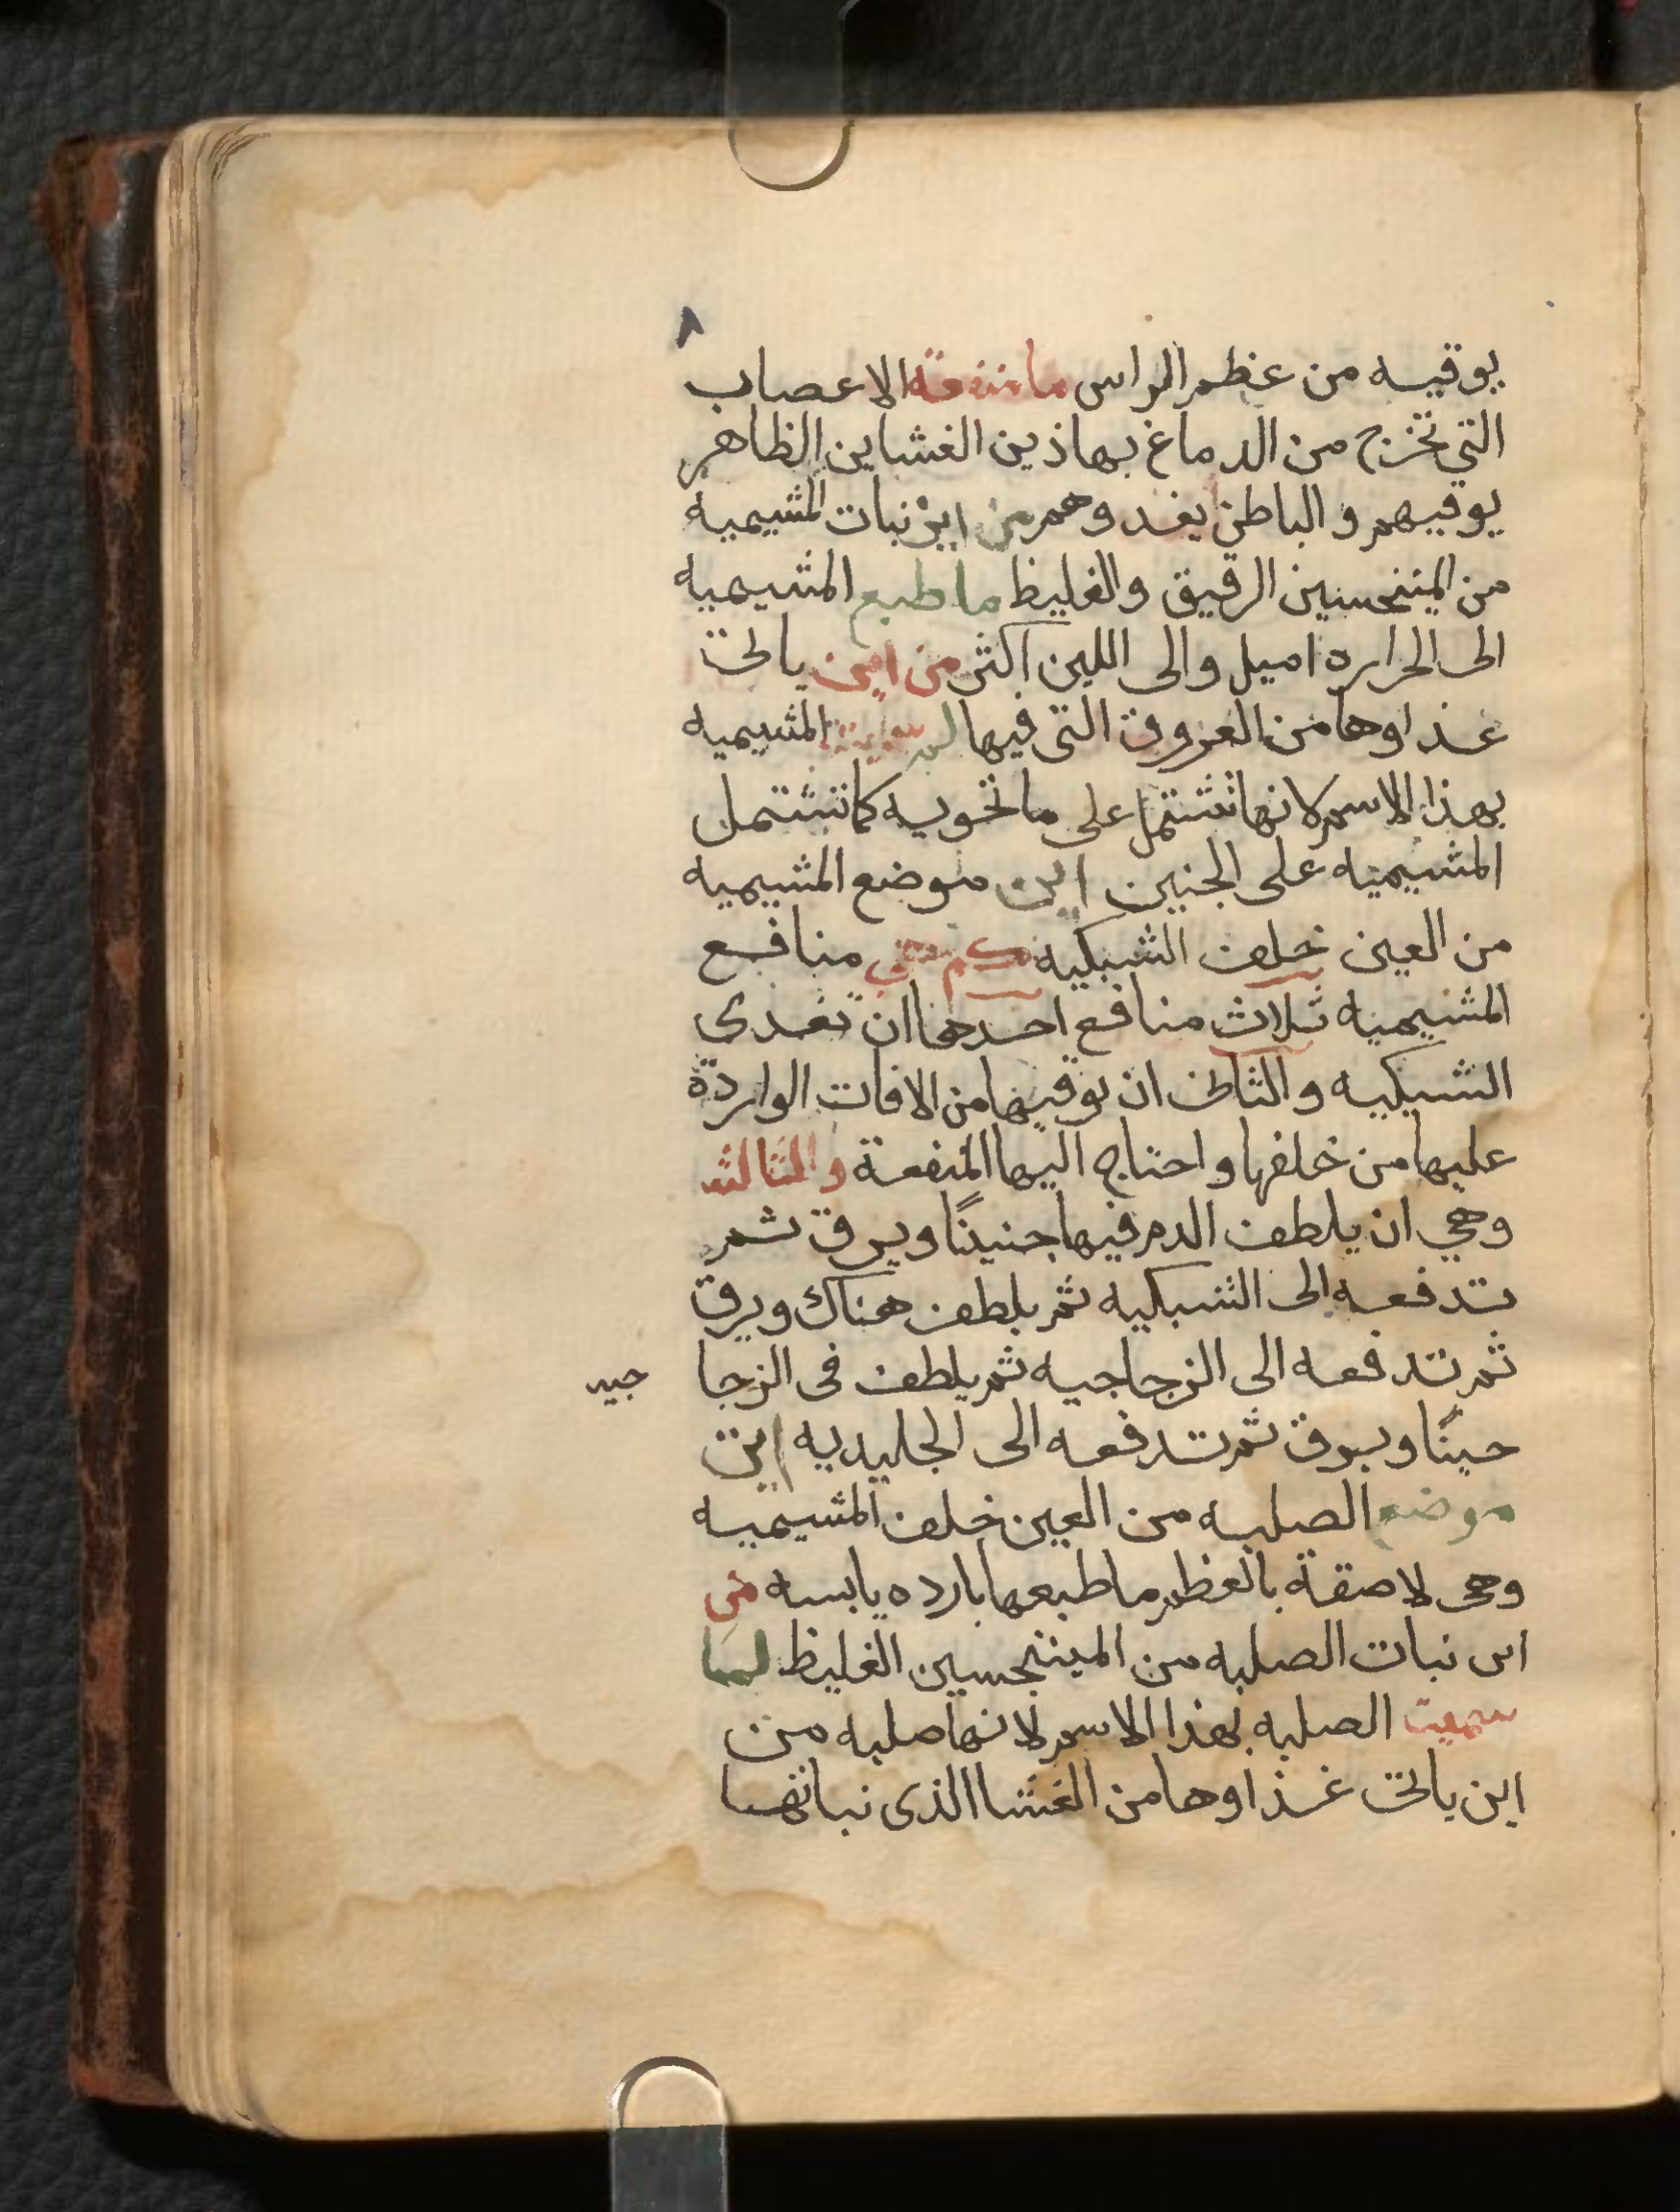 ٨
يوقيه من عظم الراس ما منفعة الاعصاب
التي تخرج من الدماغ بهاذين الغشاين الظاهر
يوقيهم والباطن يغدوهم من اين نبات المشيميه
من المننحسين الرقيق والغليظ ما طبع المشيميه
الى الحراره اميل والى اللين اكثر من اين ياتى
غذاوها من العروق التى فيها لم سميت المشيميه
بهذا الاسم لانها تشتمل على ما تحويه كما تشتمل
المشيميه على الجنين اين موضع المشيميه
من العين خلف الشبكيه كم هي منافع
المشيميه ثلاث منافع احدها ان تغدى
الشبكيه والثانى ان توقيها من الافات الواردة
عليها من خلفها واحتاج اليها المنفعة والثالثه
وهي ان يلطف الدم فيها جنينًا ويرق ثم
تدفعه الى الشبكيه ثم يلطف هناك ويرق
ثم تدفعه الى الزجاجيه ثم يلطف فى الزجا جيه
حينًا ويروق ثم تدفعه الى الجليديه اين
موضع الصلبه من العين خلف المشيميه
وهى لاصقة بالعظم ما طبعها بارده يابسه من
اين نبات الصلبه من المينيجسين الغليظ لما
سميت الصلبه بهذا الاسم لانها صلبه من
اين ياتى غذاوها من الغشا الذى نباتها